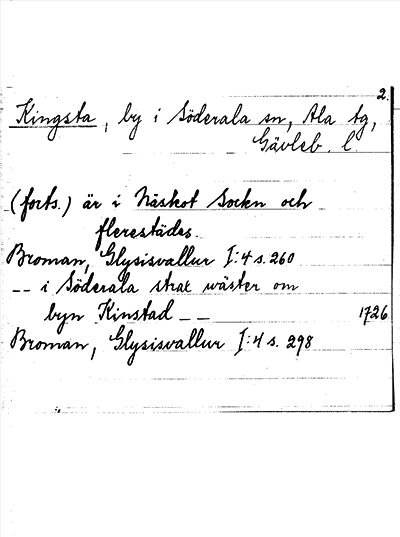 2.
Kingsta, by i Söderala sn, Ala tg,
Gävleb. l.
(forts.) är i Näskot Sockn och
flerestädes.
Broman, Glysisvallur I:4 s. 260
-- i Söderala strax wäster om
byn Kinstad -- 1726
Broman, Glysisvallur I:4 s. 298